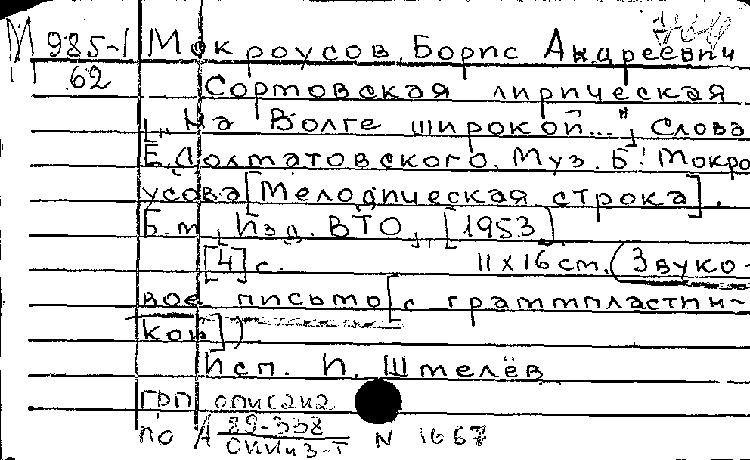 М 985-1 Мокроусов, Борис Андреевич
62 Сормовская лирическая
[„На Волге широкой..."] Слова
Е. Долматовского. Муз. Б. Мокро
усова [Мелодическая строка].
Б.м., Изд. ВТО, [1953]
[4] с. 11х16 см. (Звуко-
вое письмо [с грампластин-
кой])
Исп. И. Шмелёв
ГРП описана
по А 89-338 N 1667